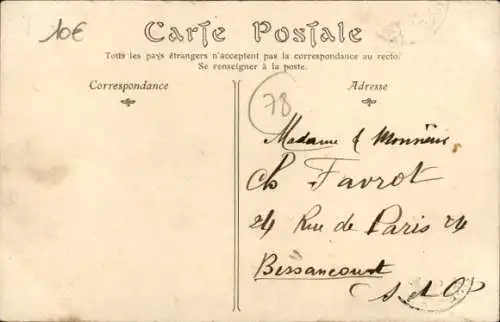 10€
Carte Postale
Tous les pays étrangers n'acceptent pas la correspondance au recto.
Se renseigner à la poste.
Correspondance
Adresse
78
Madame & Monsieur
Ch Favrot
24 Rue de Paris 24
Bessancourt
S et O